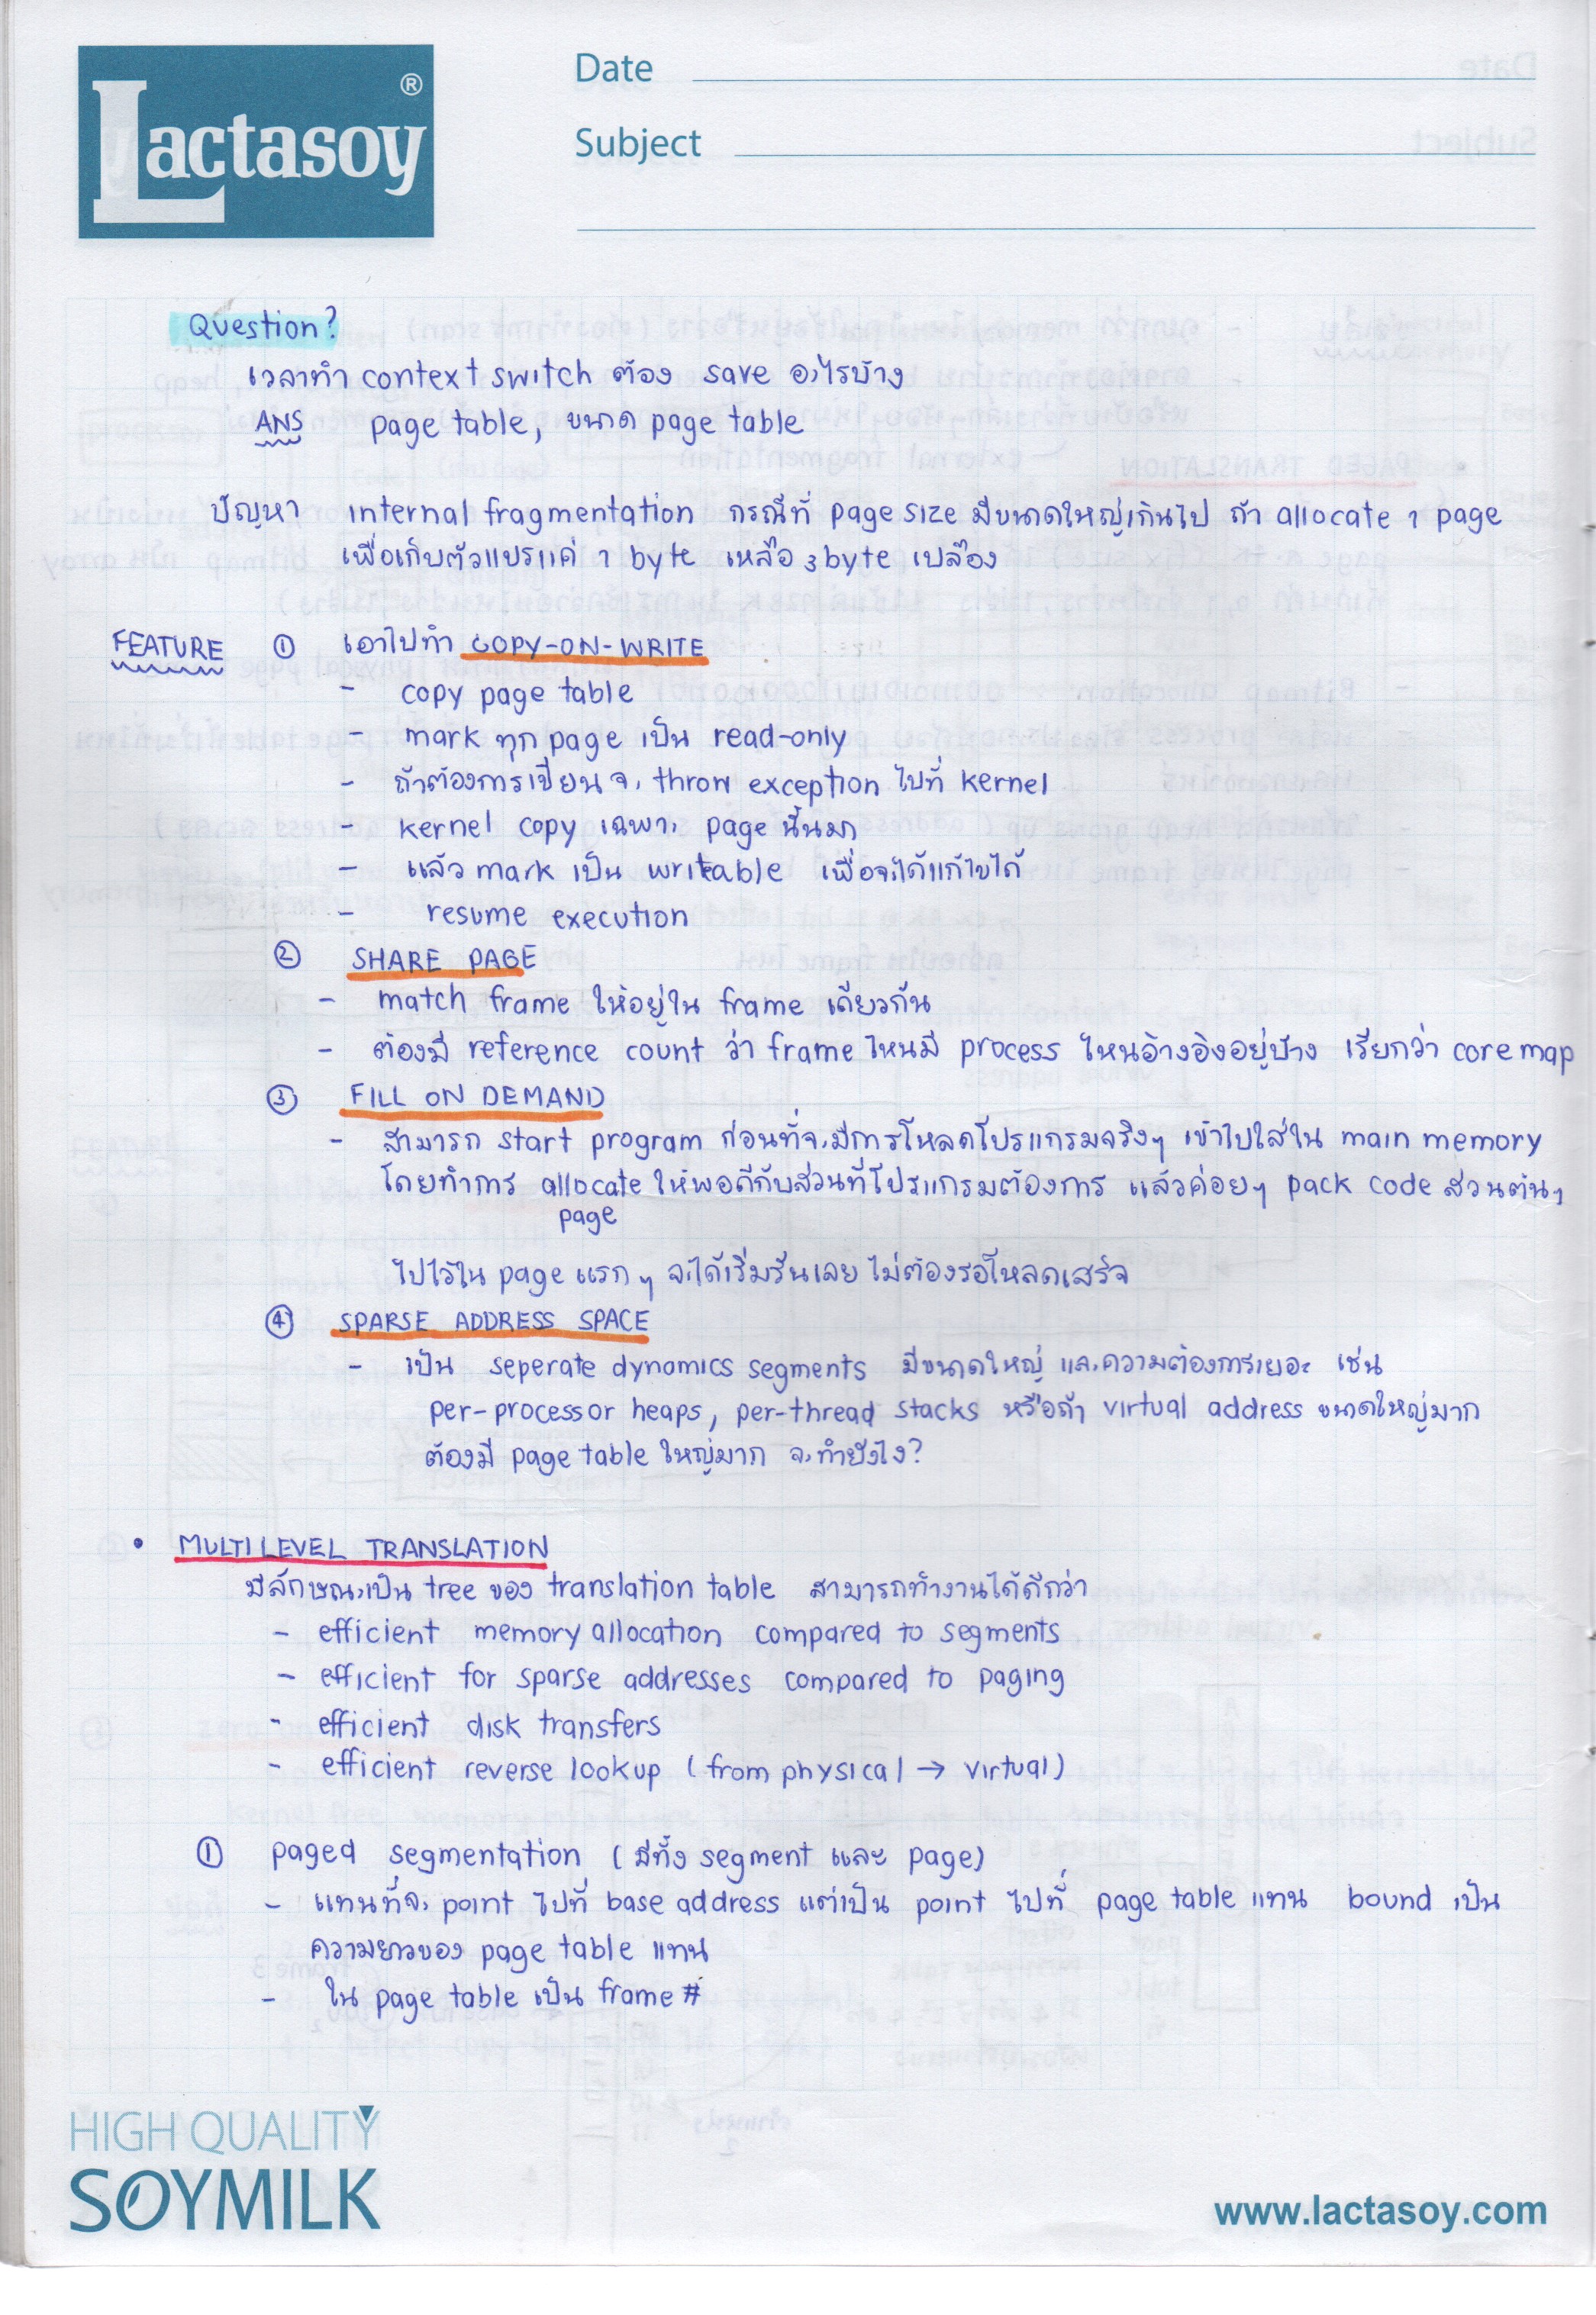 Lactasoy®
Date
Subject
Question?
เวลาทำ context switch ต้อง save อะไรบ้าง
ANS page table, ขนาด page table
ปัญหา internal fragmentation กรณีที่ page size มีขนาดใหญ่เกินไป ถ้า allocate 1 page
เพื่อเก็บตัวแปรแค่ 1 byte เหลือ 3 byte เปลือง
FEATURE ① เอาไปทำ COPY-ON-WRITE
- copy page table
- mark ทุก page เป็น read-only
- ถ้าต้องการเขียนจะ throw exception ไปที่ kernel
- kernel copy เฉพาะ page นั้นมา
- แล้ว mark เป็น writeable เพื่อจะได้แก้ไขได้
- resume execution
② SHARE PAGE
- match frame ให้อยู่ใน frame เดียวกัน
- ต้องมี reference count ว่า frame ไหนมี process ไหนอ้างอิงอยู่บ้าง เรียกว่า core map
③ FILL ON DEMAND
- สามารถ start program ก่อนที่จะมีการโหลดโปรแกรมจริงๆ เข้าไปใส่ใน main memory
โดยทำการ allocate ให้พอดีกับส่วนที่โปรแกรมต้องการ แล้วค่อยๆ pack code ส่วนต้นๆ
page
ไปไว้ใน page แรกๆ จะได้เริ่มรันเลย ไม่ต้องรอโหลดเสร็จ
④ SPARSE ADDRESS SPACE
- เป็น seperate dynamics segments มีขนาดใหญ่ และความต้องการเยอะ เช่น
per-processor heaps, per-thread stacks หรือถ้า virtual address ขนาดใหญ่มาก
ต้องมี page table ใหญ่มาก จะทำยังไง?
• MULTILEVEL TRANSLATION
มีลักษณะเป็น tree ของ translation table สามารถทำงานได้ดีกว่า
- efficient memory allocation compared to segments
- efficient for sparse addresses compared to paging
- efficient disk transfers
- efficient reverse lookup (from physical → virtual)
① paged segmentation (มีทั้ง segment และ page)
- แทนที่จะ point ไปที่ base address แต่เป็น point ไปที่ page table แทน bound เป็น
ความยาวของ page table แทน
- ใน page table เป็น frame #
HIGH QUALITY
SOYMILK
www.lactasoy.com